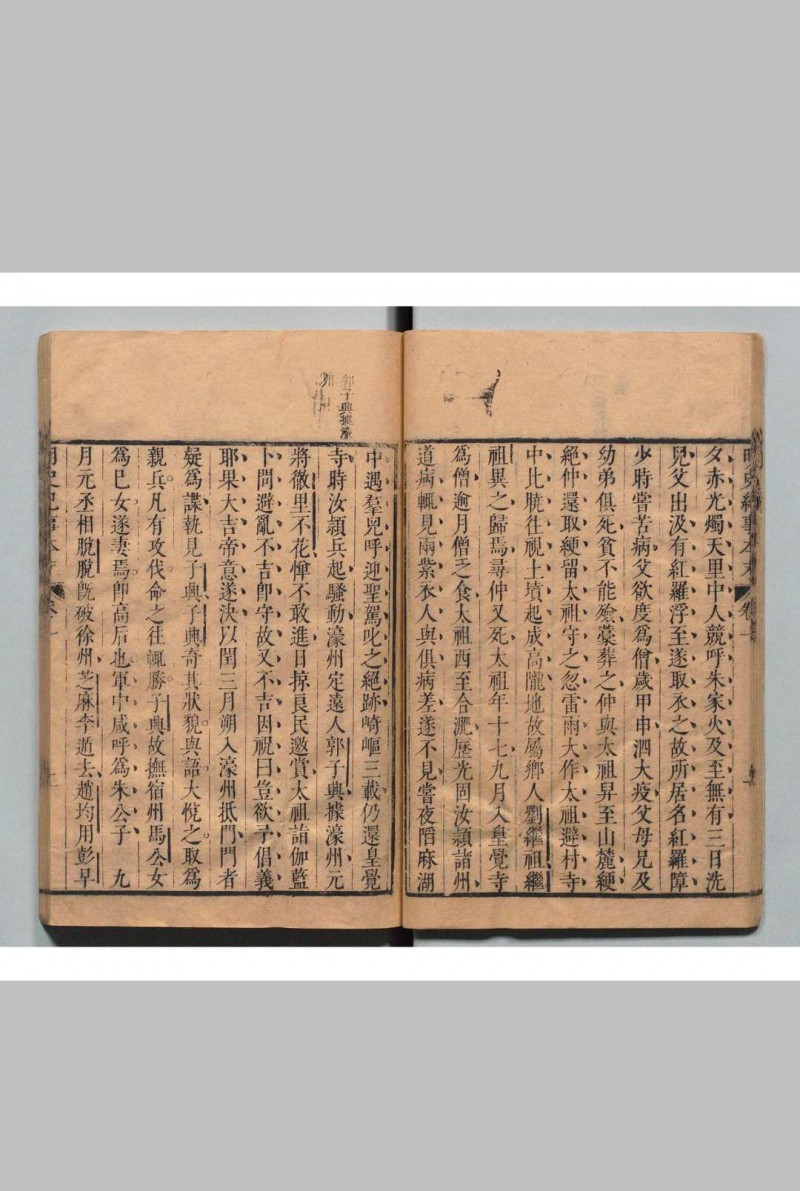 明史紀事本末 卷一
夕赤光燭天里中人競呼朱家火及至無有三日洗
兒父出汲有紅羅浮至遂取衣之故所居名紅羅障
少時嘗苦病父欲度爲僧歲甲申泗大疫父母兄及
幼弟俱死貧不能殮藁葬之仲與太祖舁至山麓綆
絕仲還取綆留太祖守之忽雷雨大作太祖避村寺
中比曉往視土墳起成高隴地故屬鄉人劉繼祖繼
祖異之歸焉尋仲又死太祖年十七九月入皇覺寺
爲僧逾月僧乏食太祖西至合淝歷光固汝潁諸州
道病輒見兩紫衣人與俱病差遂不見嘗夜陷麻湖
郭子興據濠
州
中遇羣兒呼迎聖駕叱之絕跡崎嶇三載仍還皇覺
寺時汝潁兵起騷動濠州定遠人郭子興據濠州元
將徹里不花憚不敢進日掠良民邀賞太祖詣伽藍
卜問避亂不吉卽守故又不吉因祝曰豈欲予倡義
耶果大吉帝意遂決以閏三月朔入濠州抵門門者
疑爲諜執見子興子興奇其狀貌與語大悅之取爲
親兵凡有攻伐命之往輒勝子興故撫宿州馬公女
爲巳女遂妻焉卽高后也軍中咸呼爲朱公子 九
月元丞相脫脫旣破徐州芝麻李遁去趙均用彭早
明史紀事本末 卷一